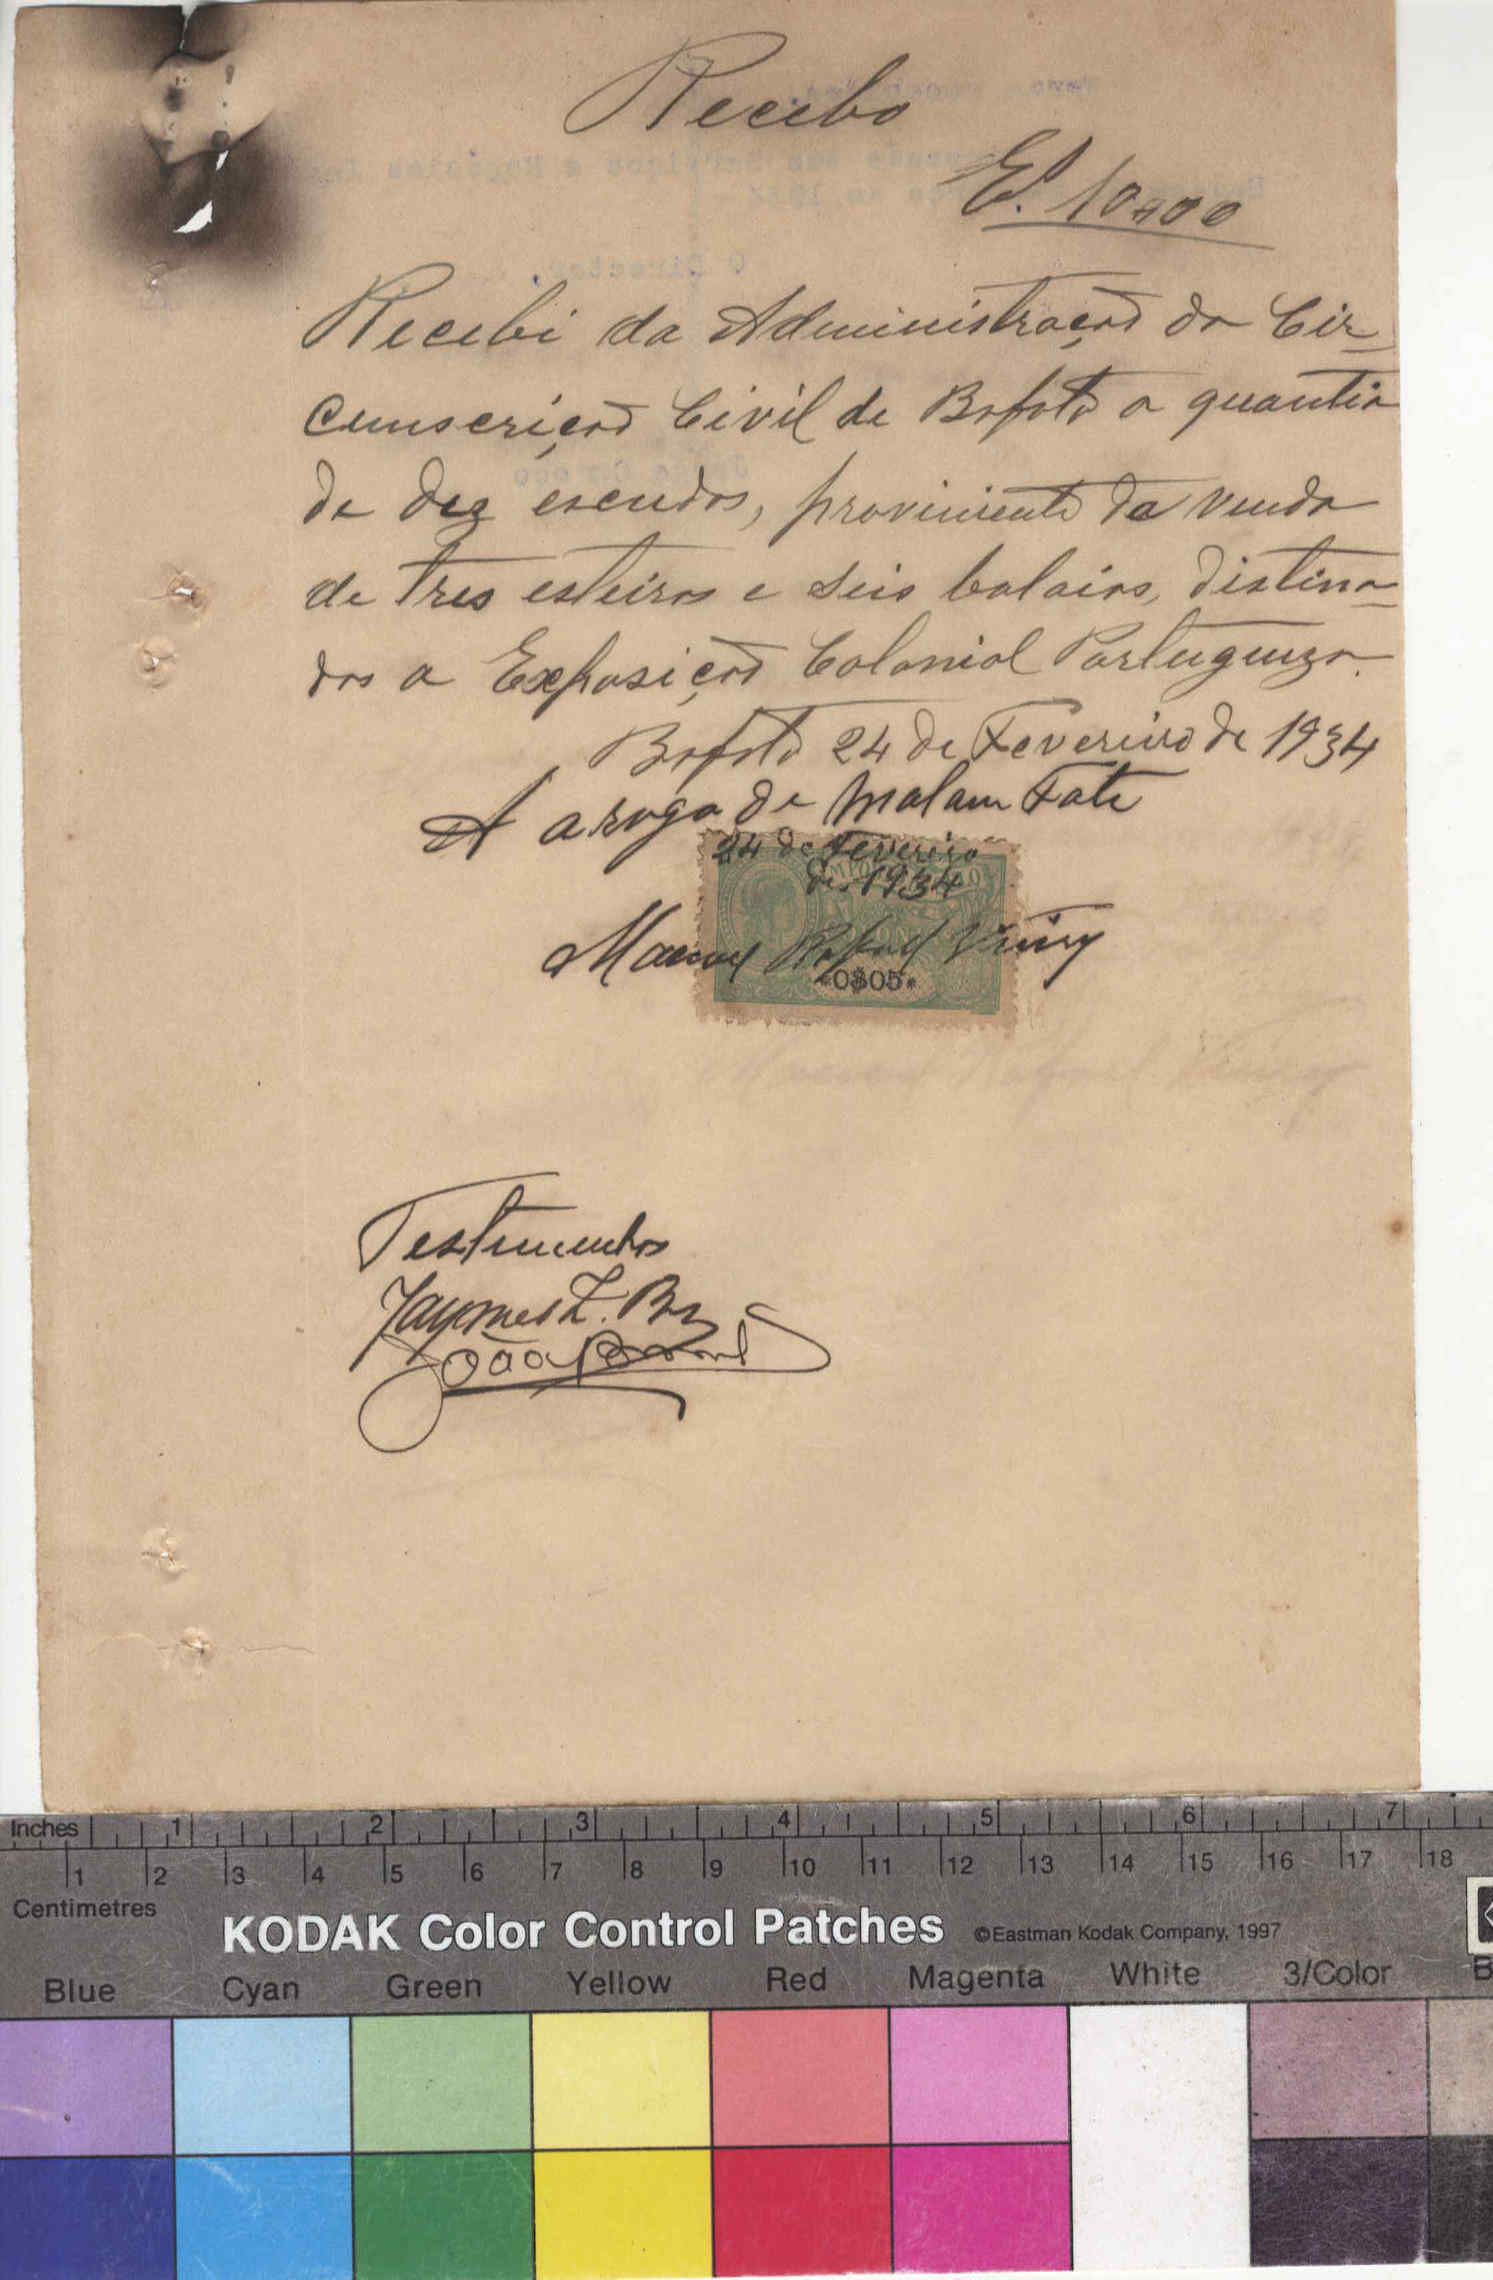 Recibo
Ec. 10$00
Recebi da Administração da Cir-
cunscrição Civil de Bafatá a quantia
de dez escudos, proviniente da venda
de tres esteiras e seis balaios, distina-
dos a Exposição Colonial Portugueza.
Bafatá 24 de Fevereiro de 1934
A arogo de Malam Fati
24 de Fevereiro
de 1934
Manoel Rafael
*0$05*
Testimunhas
João
Inches 1 2 3 4 5 6 7
1 2 3 4 5 6 7 8 9 10 11 12 13 14 15 16 17 18
Centimetres
KODAK Color Control Patches ©Eastman Kodak Company, 1997
Blue Cyan Green Yellow Red Magenta White 3/Color